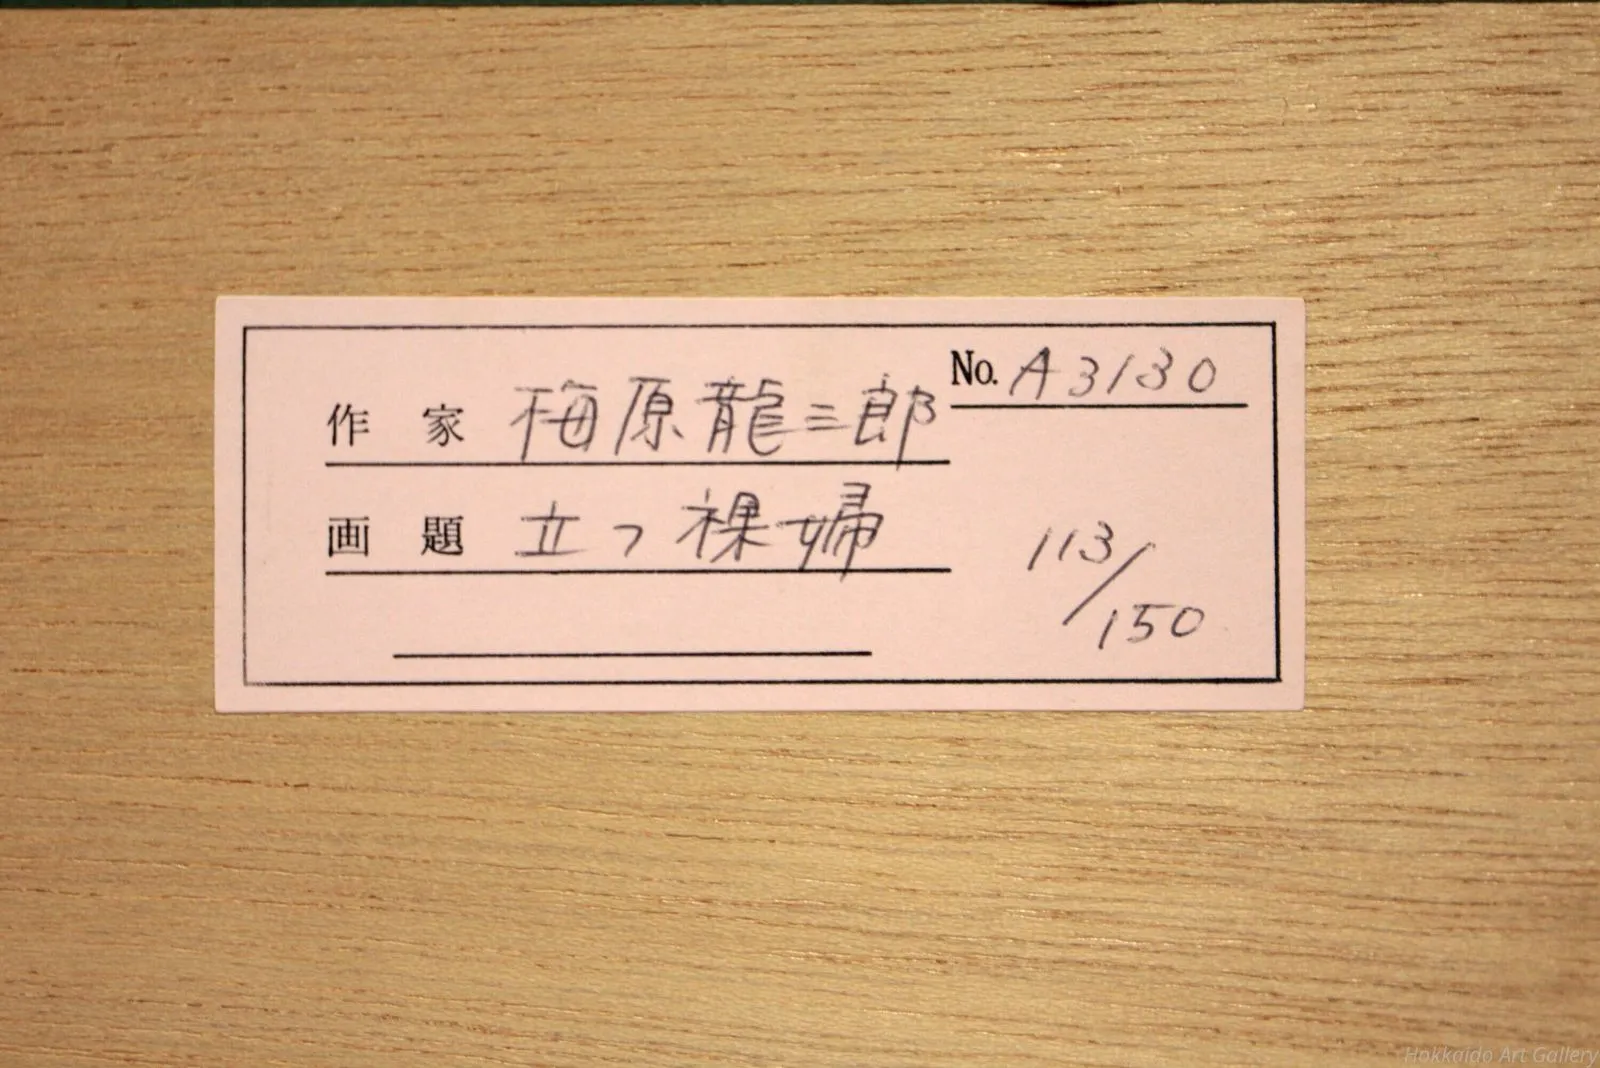 No. A3130
作家 梅原龍三郎
画題 立つ裸婦
113/150
Hokkaido Art Gallery